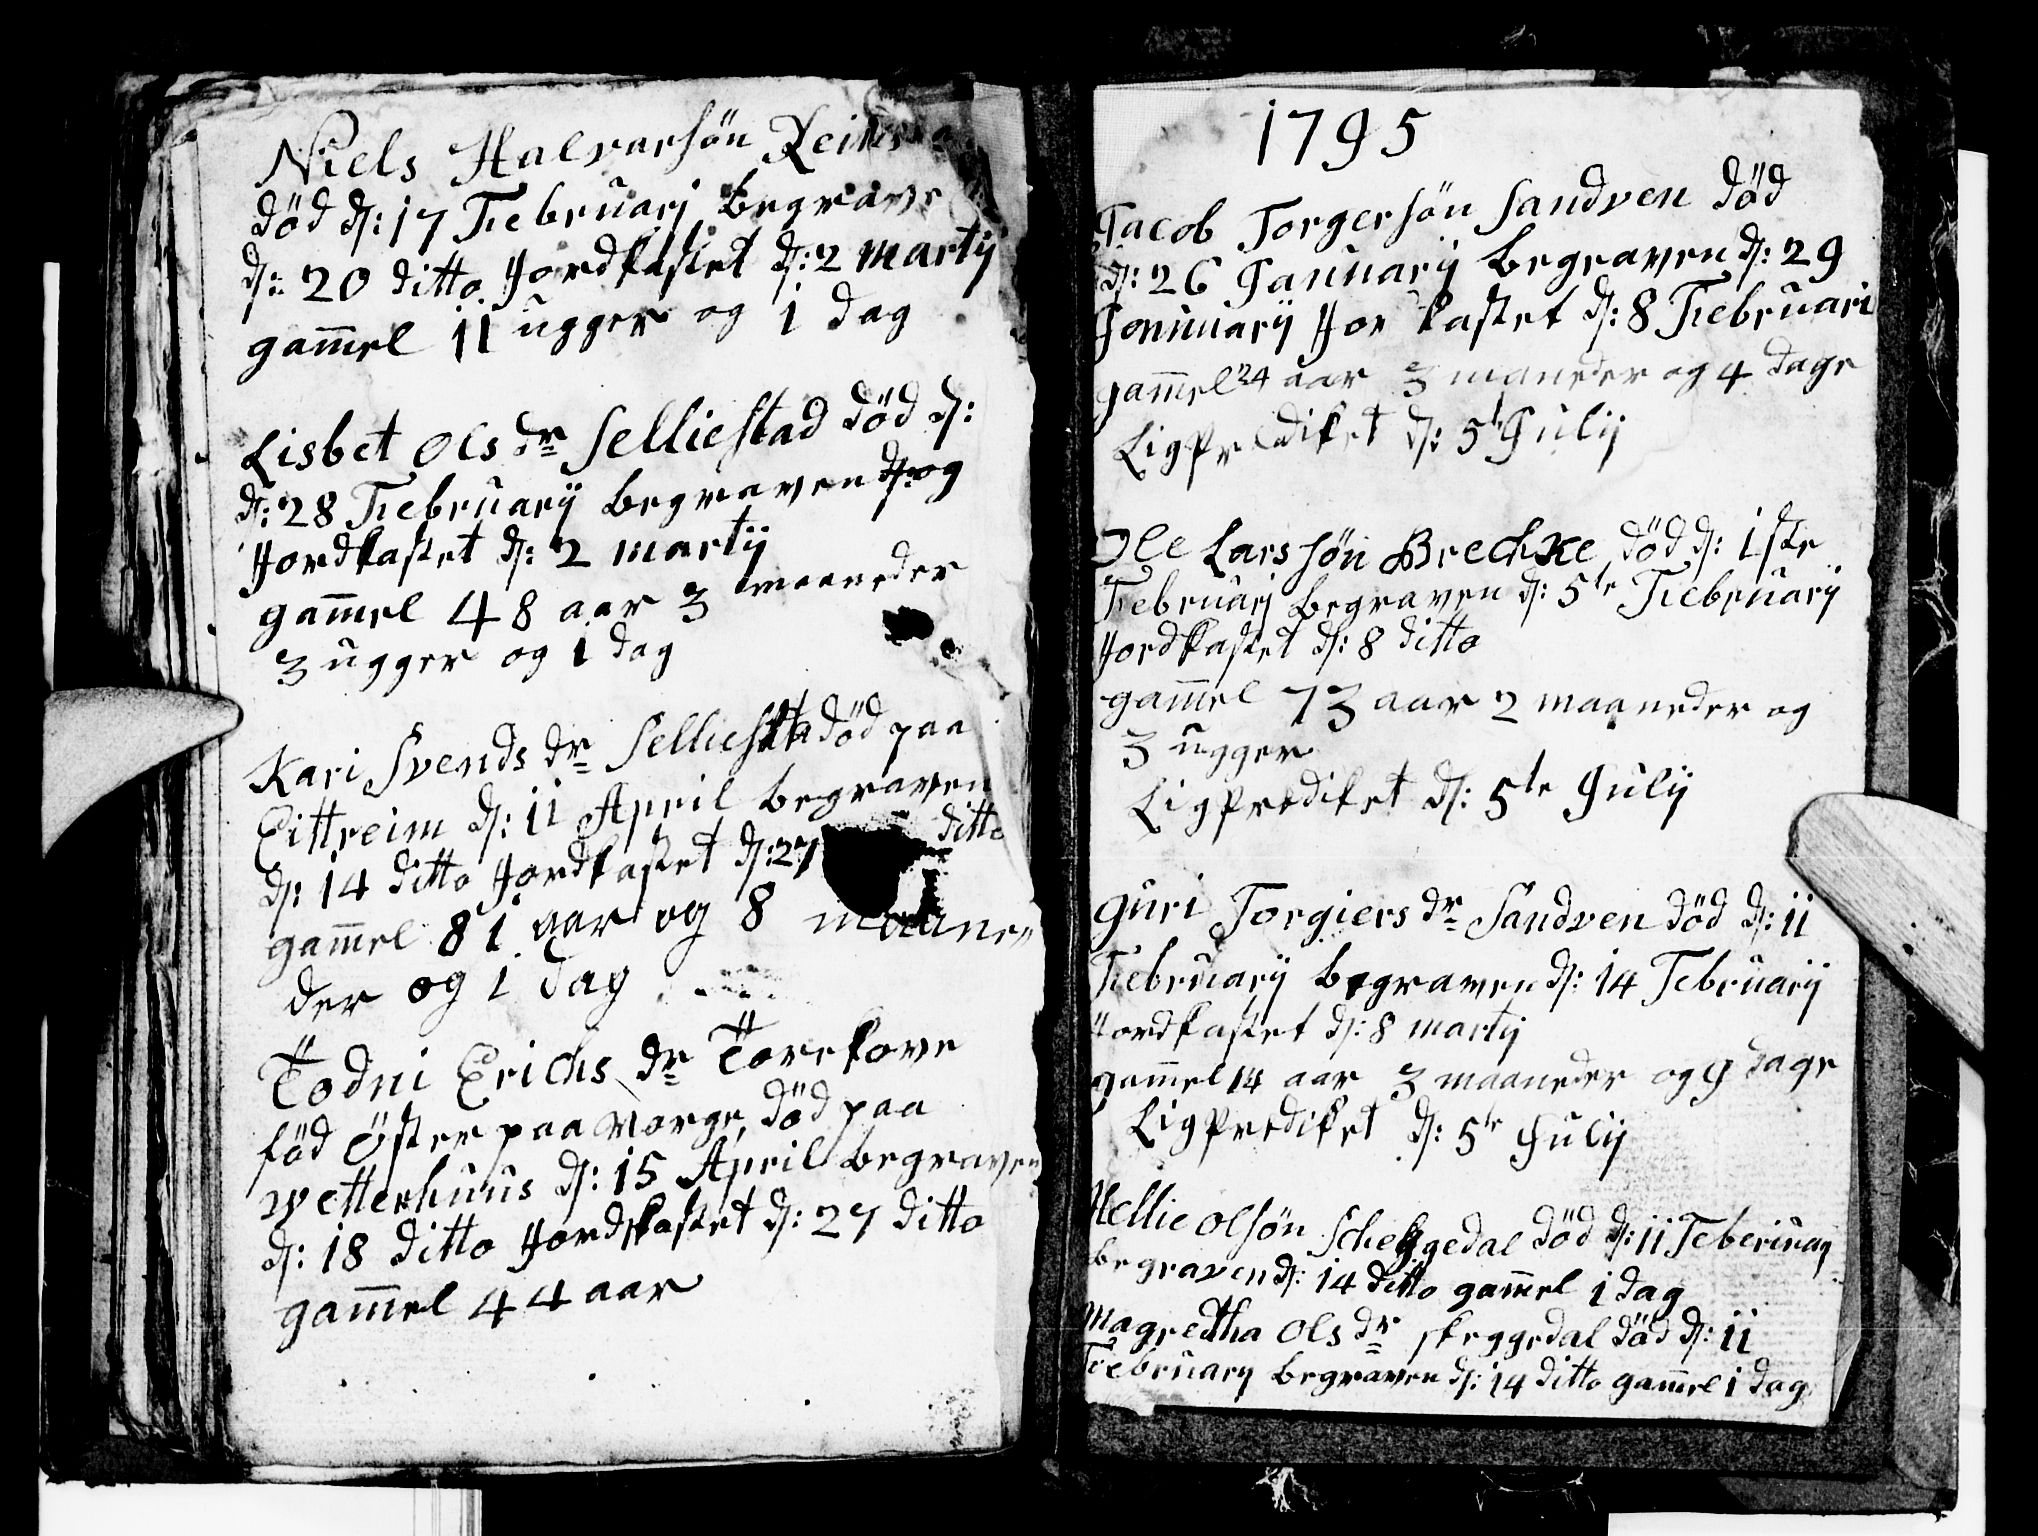 Niels Halvarsön
död ds: 17 Februarj begrave
ds: 20 ditto Jordkastet ds: 2 martij
gam̄el 11 ugger og 1 dag
Lisbet Ols dr Selliestad död ds:
ds: 28 Februarij begraven ds: og
Jordkastet ds: 2 martij
gam̄el 48 aar 3 maaneder
3 ugger og 1 dag
Kari Svends dr Selliesta död paa
Eittreim ds: 11 April begraven
ds: 14 ditto Jordkastet ds: 27 ditto
gam̄el 81 aar og 8 maane
der og 1 dag
Todni Erichs dr Torekove
föd Öster paa Vorge, död paa
Wetterhuus ds: 15 April begraven
ds: 18 ditto Jordkastet ds: 27 ditto
gam̄el 44 aar
1795
Jacob Torgersön Sandven död
ds: 26 Januarij begraven ds: 29
Jonuuarij Jor kastet ds: 8 Februari
gam̄el 24 aar 3 maneder og 4 dage
Ligprediket ds: 5t Julij
Ole Larssön Brechke död ds: 1ste
Februarj begraven ds: 5te Februarij
Jordkastet ds: 8 ditto
gam̄el 73 aar 2 maaneder og
3 ugger
Ligprediket ds: 5te Julij
Guri Torgiers dr Sandven död ds: 11
Februarij begraven ds: 14 Februarij
Jordkastet ds: 8 martij
gam̄el 14 aar 3 maaneder og 9 dage
Ligprediket ds: 5te Julij
Hellie Olsön Scheggedal död ds: 11 Feberiuarj
begraven ds: 14 ditto gam̄el 1 dag
Magretha Ols dr skeggedal död ds: 11
Februarij begraven ds: 14 ditto gam̄el 1 dag